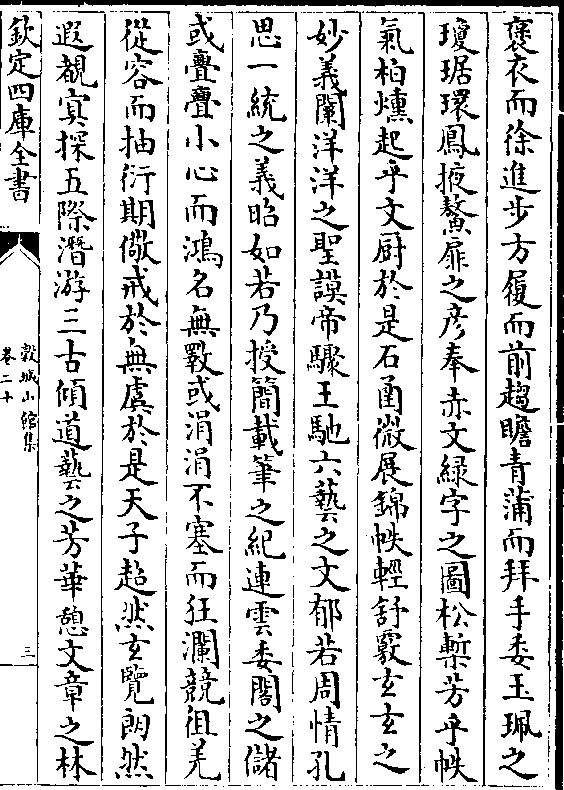 褒衣而徐進步方履而前趨瞻青蒲而拜手委玉珮之
瓊琚環鳳掖鰲扉之彦奉赤文緑字之圖松槧芳乎帙
氣柏燻起乎文厨於是石函微展錦帙輕舒覈玄玄之
妙義闡洋洋之聖謨帝驟王馳六藝之文郁若周情孔
思一統之義昭如若乃授簡載筆之紀連雲委閣之儲
或亹亹小心而鴻名無斁或涓涓不塞而狂瀾競徂羌
從容而抽衍期儆戒於無虞於是天子超然玄覽朗然
遐覩㝠探五際潛游三古傾道藝之芳華憩文章之林
欽定四庫全書
榖城山館集
卷二十
三